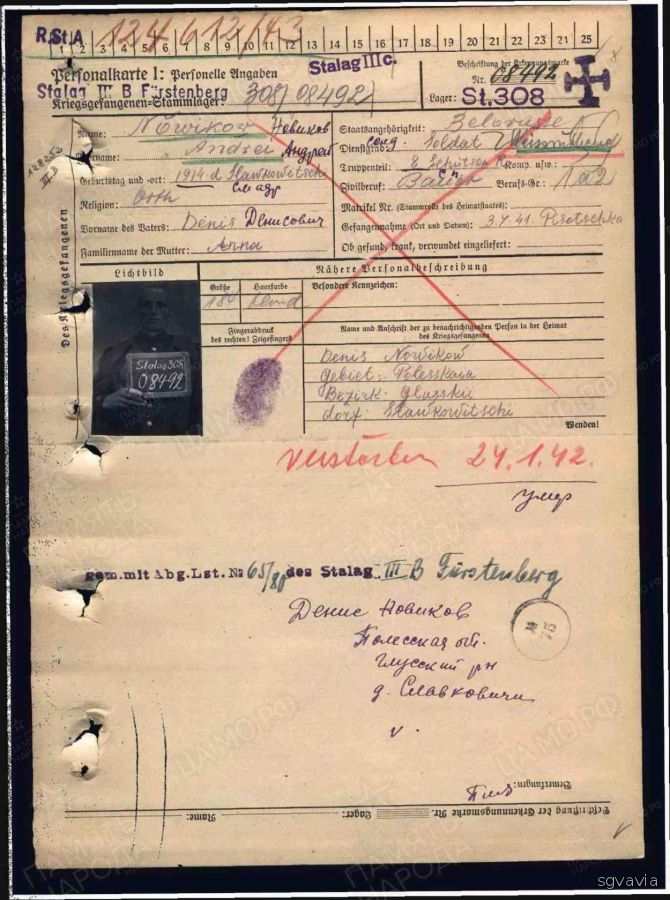 R.St.A 124 612/43
1 2 3 4 5 6 7 8 9 10 11 12 13 14 15 16 17 18 19 20 21 22 23 24 25
Personalkarte I: Personelle Angaben
Stalag IIIc.
Beschriftung der Erkennungsmarke
Nr. 08492
Stalag III B Fürstenberg
Kriegsgefangenen-Stammlager: 308/08492
Lager: St.308
Des Kriegsgefangenen
Name: Nowikow Новиков
Vorname: Andrei Андрей
Geburtstag und -ort: 1914 d. Slawkowitschi
Religion: Orth
Vorname des Vaters: Denis Денисович
Familienname der Mutter: Anna
Staatsangehörigkeit:
Dienstgrad: Soldat
Truppenteil: Komp. usw.:
Zivilberuf: Berufs-Gr.:
Matrikel Nr. (Stammrolle des Heimatstaates):
Gefangennahme (Ort und Datum): 3.7.41.
Ob gesund, krank, verwundet eingeliefert:
Lichtbild
Nähere Personalbeschreibung
Größe
Haarfarbe
Besondere Kennzeichen:
184 blond
Stalag 308
08492
Fingerabdruck
des rechten! Zeigefingers
Name und Anschrift der zu benachrichtigenden Person in der Heimat
des Kriegsgefangenen
Denis Nowikow
Gebiet: Polesskaia
Bezirk: Glusskii
dorf: Slawkowitschi
Wenden!
verstorben 24.1.42.
умер
gem.mit Abg.Lst.№ 65/80 des Stalag III B Fürstenberg
Денис Новиков
Полесская обл.
Глусский рн
д. Славковичи
Bemerkungen:
Beschriftung der Erkennungsmarke Nr. Lager: Name:
sgvavia